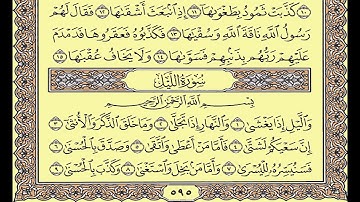 ١٠ كَذَّبَتْ ثَمُودُ بِطَغْوَىٰهَآ ١١ إِذِ ٱنۢبَعَثَ أَشْقَىٰهَا ١٢ فَقَالَ لَهُمْ
رَسُولُ ٱللَّهِ نَاقَةَ ٱللَّهِ وَسُقْيَٰهَا ١٣ فَكَذَّبُوهُ فَعَقَرُوهَا فَدَمْدَمَ
عَلَيْهِمْ رَبُّهُم بِذَنۢبِهِمْ فَسَوَّىٰهَا ١٤ وَلَا يَخَافُ عُقْبَٰهَا ١٥
سُورَةُ ٱلَّيْلِ
بِسْمِ ٱللَّهِ ٱلرَّحْمَٰنِ ٱلرَّحِيمِ
وَٱلَّيْلِ إِذَا يَغْشَىٰ ١ وَٱلنَّهَارِ إِذَا تَجَلَّىٰ ٢ وَمَا خَلَقَ ٱلذَّكَرَ وَٱلْأُنثَىٰٓ ٣
إِنَّ سَعْيَكُمْ لَشَتَّىٰ ٤ فَأَمَّا مَنْ أَعْطَىٰ وَٱتَّقَىٰ ٥ وَصَدَّقَ بِٱلْحُسْنَىٰ ٦
فَسَنُيَسِّرُهُۥ لِلْيُسْرَىٰ ٧ وَأَمَّا مَنۢ بَخِلَ وَٱسْتَغْنَىٰ ٨ وَكَذَّبَ بِٱلْحُسْنَىٰ ٩
٥٩٥